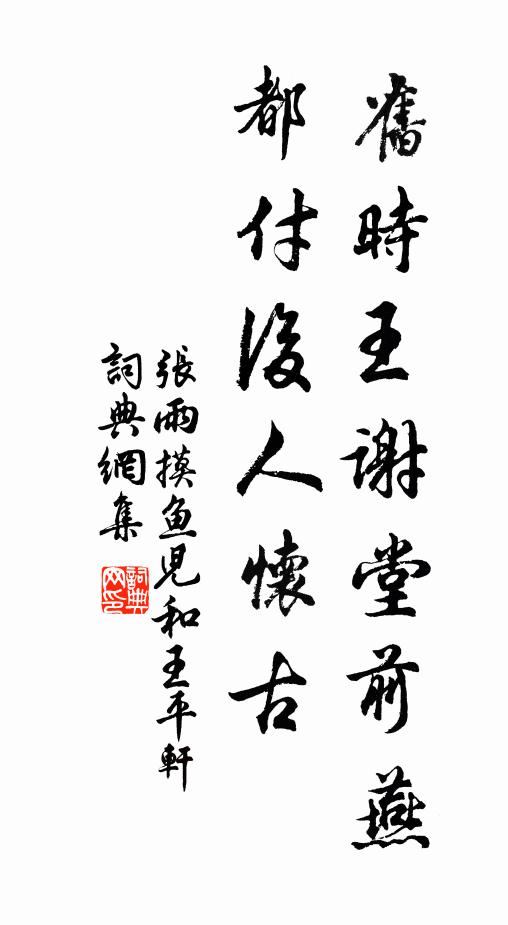 舊時王謝堂前燕
都付後人懷古
張雨摸鱼児和王平軒
詞典網集
詞典
网印